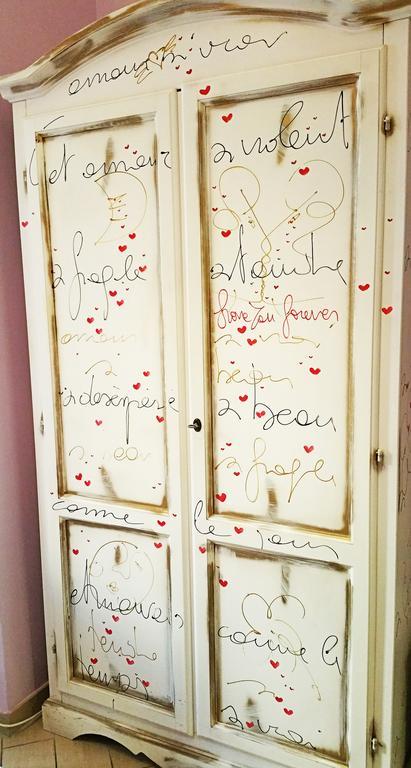 amour si vrai
Cet amour
si violent
si fragile
si tendre
I love you forever
amour
si
si désespéré
beau
si beau
si beau
si fragile
comme le jour
et mauvais
comme le
tendre
temps
si vrai